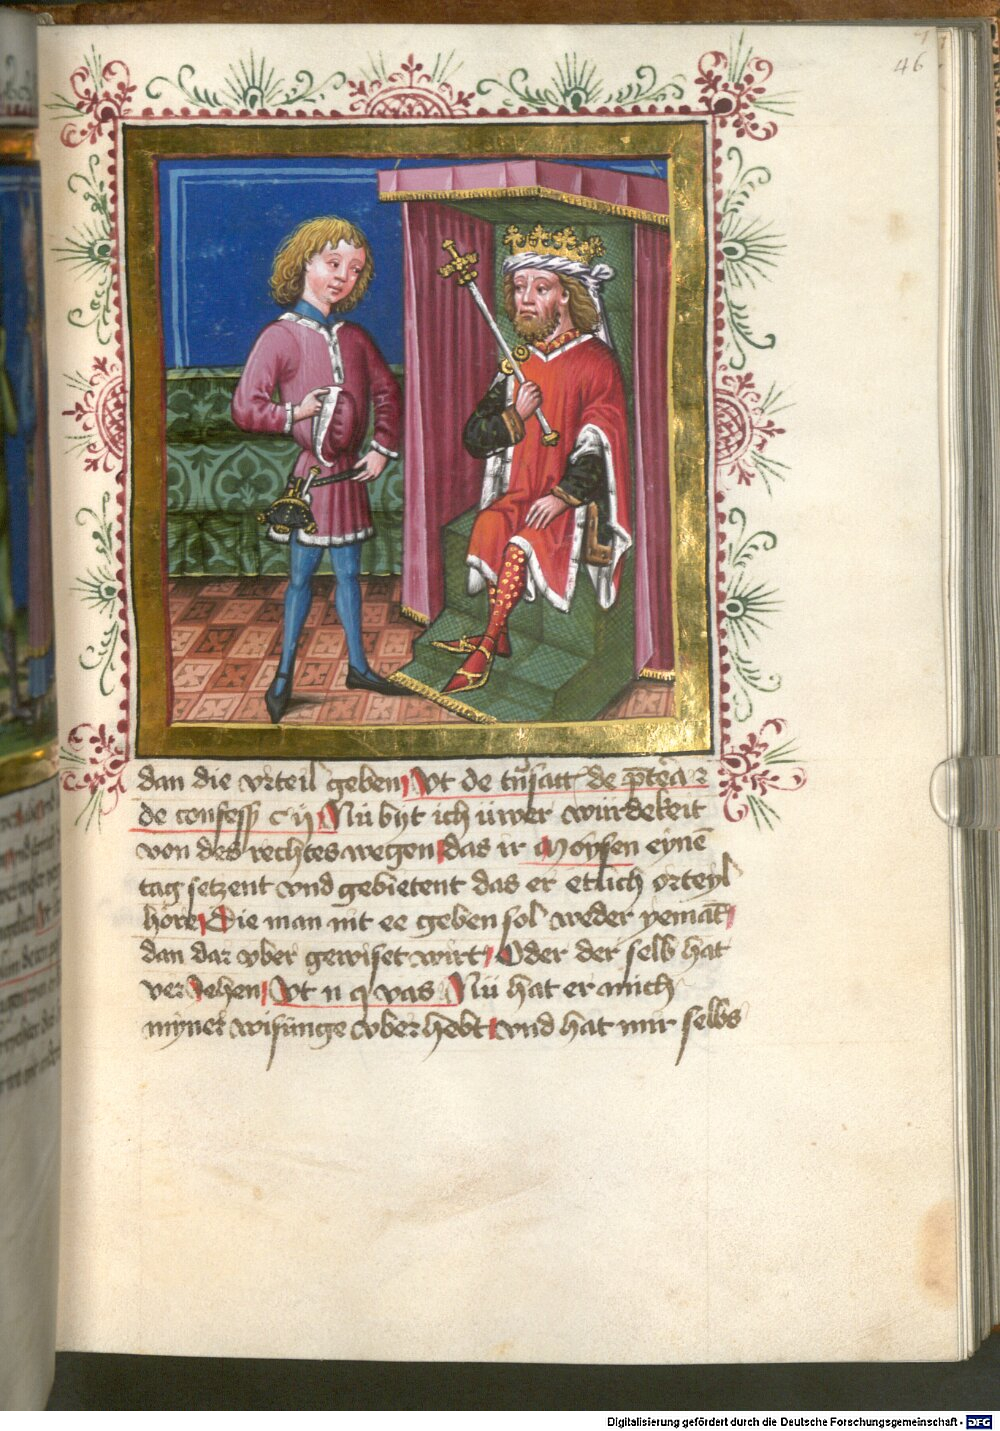 46
dan die vrteil geben Vt de trͤsatt de p̄terͣ ꝛ
de confess c ij Nū byt ich üwer würdekeit
von des rechtes wegen das ir Moysen eynē
tag setzent vnd gebietent das er etlich orteyl
höre Die man nit ee geben sol weder yemāt
dan dar vber gewiset wirt Oder der selb hat
veriehen Vt n q vas Nü hat er mich
myner wisunge vber hebt vnd hat mir selbs
Digitalisierung gefördert durch die Deutsche Forschungsgemeinschaft - DFG